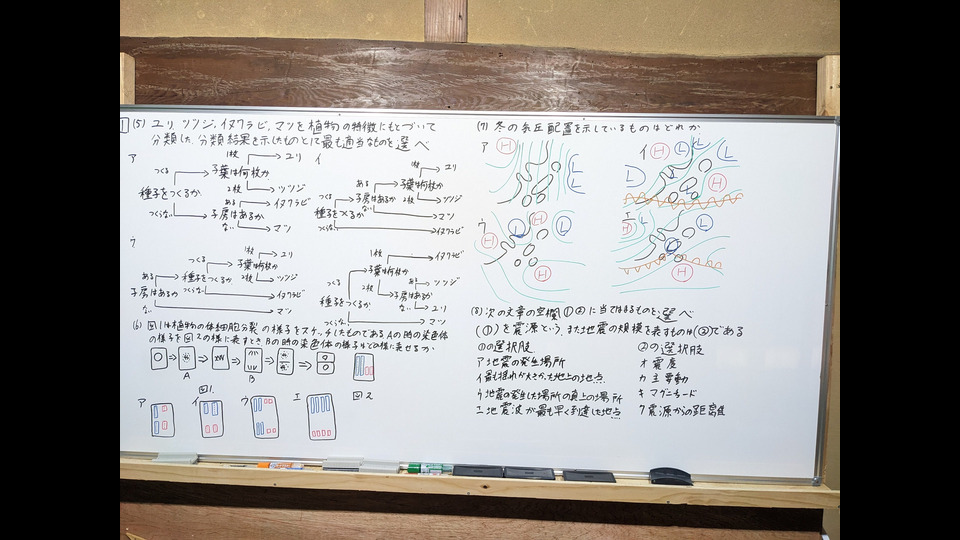 1 (5) ユリ, ツツジ, イヌワラビ, マツを植物の特徴にもとづいて
分類した. 分類結果を示したものとして最も適当なものを選べ
ア
種子をつくるか
つくる
子葉は何枚か
1枚
ユリ
2枚
ツツジ
つくらない
子房はあるか
ある
イヌワラビ
ない
マツ
イ
種子をつくるか
つくる
子房はあるか
ある
子葉は何枚か
1枚
ユリ
2枚
ツツジ
ない
マツ
つくらない
イヌワラビ
ウ
子房はあるか
ある
種子をつくるか
つくる
子葉は何枚か
1枚
ユリ
2枚
ツツジ
つくらない
イヌワラビ
ない
マツ
種子をつくるか
つくる
子葉は何枚か
1枚
イヌワラビ
2枚
子房はあるか
ある
ツツジ
ない
ユリ
つくらない
マツ
(6) 図1は植物の体細胞分裂の様子をスケッチしたものである Aの時の染色体
の様子を図2の様に表すとき Bの時の染色体の様子はどの様に表せるか
A
B
図1.
図2
ア
イ
ウ
エ
(7) 冬の気圧配置を示しているものはどれか
ア
H
L
L
L
イ
H
L
L
L
L
H
ウ
H
L
H
L
H
エ
H
L
L
L
H
(8) 次の文章の空欄①②に当てはまるものを選べ
(①)を震源という. また地震の規模を表すものは(②)である
①の選択肢
ア 地震の発生場所
イ 最も揺れが大きかった地上の地点
ウ 地震の発生した場所の真上の場所
エ 地震波が最も早く到達した地点
②の選択肢
オ 震度
カ 主要動
キ マグニチュード
ク 震源からの距離